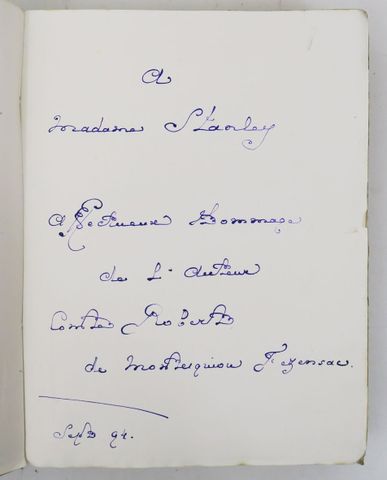 A
Madame Stanley
Affectueux Hommage
de l'auteur
Comte Robert
de Montesquiou Fezensac.
Sept 94.